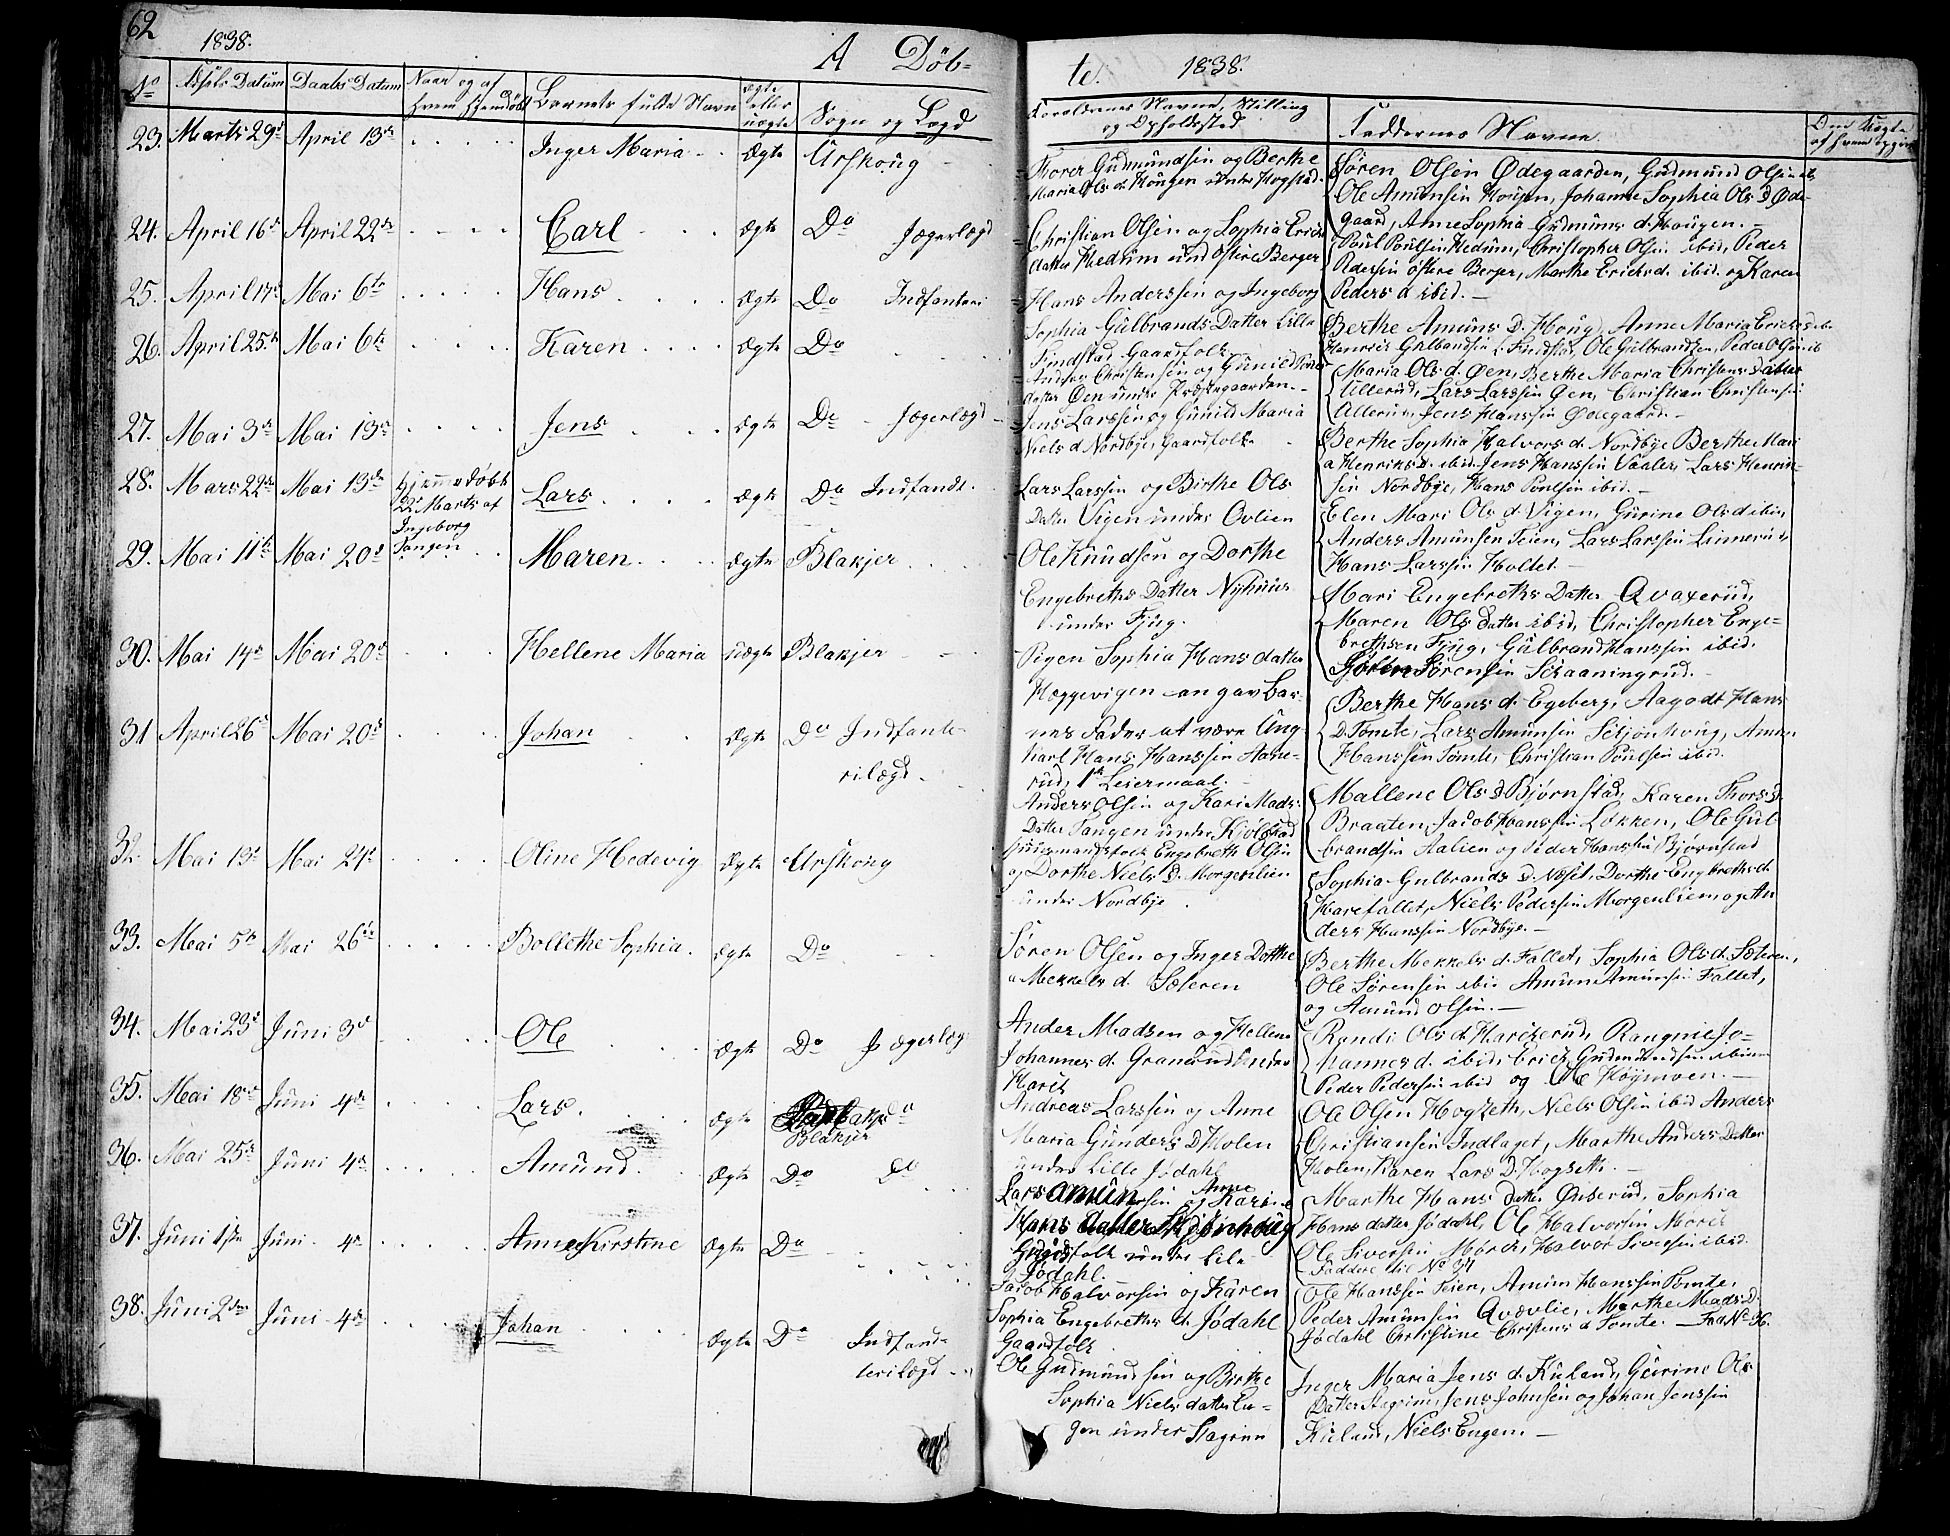 62
1838.
A Döb-
te. 1838.
No Fødsels Datum Daabs Datum Naar og af hvem hjemdøbt Barnets fulde Navn ægte eller uægte Sogn og Lægd
Forældrenes Navne, Stilling og Opholdssted
Faddernes Navne
23. Marts 29de April 13de Inger Maria ægte Urskoug
Gudmundsen og Berthe
Maria Ols d. Hougen under Hogstad.
Søren Olsen Ødegaarden, Gudmund Olsen ib,
Ole Amundsen Hougen, Johanne Sophia Ols D Øde-
gaard, Anne Sophia Gudmuns d. Hougen.
24. April 16de April 22de Carl ægte Do Jægerlægd
Christian Olsen og Sophia Erics
datter Hedum und Østere Berger
Poul Poulsen Hedum, Christopher Olsen ibid, Peder
Pedersen Østere Berger, Marthe Ericks d. ibid. og Karen
Peders d ibid.
25. April 17de Mai 6te Hans ægte Do Indfanteri
Hans Anderssen og Ingeborg
Sophia Gulbrands Datter Lille
Finstad Gaardfolk
Berthe Amuns D. Houg, Anne Maria Ericks d ib
Henrick Gulbandsen L. Findstad, Ole Gulbrandsen, Peder Olsen ib
26. April 25de Mai 6te Karen ægte Do
Andreas Christensen og Gunild
datter Øen under Præstegaarden.
Maria Ols d. Øen, Berthe Maria Christens Datter
Ullerud, Lars Larssen Øen, Christian Christensen
Ullerud, Jens Hanssen Ødegaard.
27. Mai 3de Mai 13de Jens ægte Do Jægerlægd
Jens Larssen og Gunild Maria
Niels d Nordbye, Gaardfolk
Berthe Sophia Halvors d. Nordbye Berthe Mari
a Henriks D. ibid. Jens Hanssen Saaler, Lars Henrik-
sen Nordbye, Hans Poulsen ibid.
28. Mars 22de Mai 13de Hjemmedøbt
22de Marts af
Ingeborg
Tangen
Lars ægte Do Indfandt.
Lars Larssen og Birthe Ols
Datter Vigen under Ovlien
Elen Mari Ols d. Vigen, Gurine Ols d ibid,
Anders Amunsen Teien, Lars Larssen Lunerud
Hans Larssen Holtet
29. Mai 11te Mai 20de Maren ægte Blakjer
Ole Knudsen og Dorthe
Engebreths Datter Nyhuus
under Fjug.
Mari Engebreths Datter Qvaxerud,
Maren Ols datter ibid, Christopher Enge-
brethsen Fjug, Gulbrand Hanssen ibid.
Sørensen Skaaningrud.
30. Mai 14de Mai 20de Hellene Maria uægte Blakjer
Pigen Sophia Hans datter
Heggevigen angav Bar-
nes Fader at være Ung-
karl Hans Hanssen
rud, 1te Leiermaal.
Berthe Hans d. Egeberg, Aagodt Hans
D. Tomte, Lars Amunsen Schjønhoug, Amun
Hanssen Tomte, Christian Poulsen ibid.
31 April 26de Mai 20de Johan ægte Do Indfante-
rilægd
Anders Olsen og Kari Mads
Datter Tangen under Kjølstad
Huusmandsfolk
Mallene Ols D Bjørnstad, Karen Thors D.
Braaten, Jacob Hanssen Løkken, Ole Gul
brandsen Aalien og Peder Hanssen Bjørnstad
32. Mai 13de Mai 24de Oline Hedevig ægte Urskoug
Engebreth Olsen
og Dorthe Niels D. Morgenlien
under Nordbye
Sophia Gulbrands D. Neset. Dorthe Engbreths d.
Harefallet, Niels Pedersen Morgenlien, og An
ders Hanssen Nordbye.
33. Mai 5te Mai 26de Bollethe Sophia. ægte Do
Søren Olsen og Inger Dorthe
a Mekkels d. Sæteren
Berthe Mekkels d. Fallet, Sophia Ols d. Sæteren,
Ole Sørensen ibid Amun Amunsen Fallet,
og Amund Olsen.
34. Mai 23de Juni 3de Ole ægte Do Jægerlæg
Ander Madsen og Hellene
Johannes d. Gransund under
Rondi Ols d. Harkerud, Rangnie Jo-
hannes d. ibid, Erick Gudmundsen ibid
Peder Pedersen ibid og Ole Høymoen.
35. Mai 18de Juni 4de Lars. ægte Blakjer Do
Andreas Larssen og Anne
Maria Gunders D. Holen
under Lille Jødahl
Ole Olsen Hogseth, Niels Olsen ibid Anders
Christiansen Indlaget, Marthe Anders Datter
Holen, Karen Lars D. Hogseth.
36. Mai 25de Juni 4de Amund ægte Do Do
Lars Amunsen og Anne Karine
Hans datter Skjønhoug
Gaardsfolk under Lile
Jødahl.
Marthe Hans datter Ouserud, Sophia
Hans datter Jødahl, Ole Halvorsen Mørck
Ole Siversen Mørck, Halvor Siversen ibid.
Faddere til No 37
37. Juni 1ste Juni 4de Anne Kirstine ægte Do
Jacob Halvorsen og Karen
Sophia Engebreths d. Jødahl
Gaardfolk
Ole Hanssen Teien, Amun Hanssen Tomte,
Peder Amunsen Qvævlie, Marthe Mads D.
Jødahl Christine Christens d Tomte. Fad No 36.
38. Juni 2den Juni 4de Johan ægte Do Indfand-
terilægd
Ole Gudmundsen og Birthe
Sophia Niels datter En-
gen under Stagrim
Inger Maria Jens d. Kieland, Geurine Ols
Datter Stagrim, Jens Johnsen og Johan Jenssen
Kieland, Niels Engen.